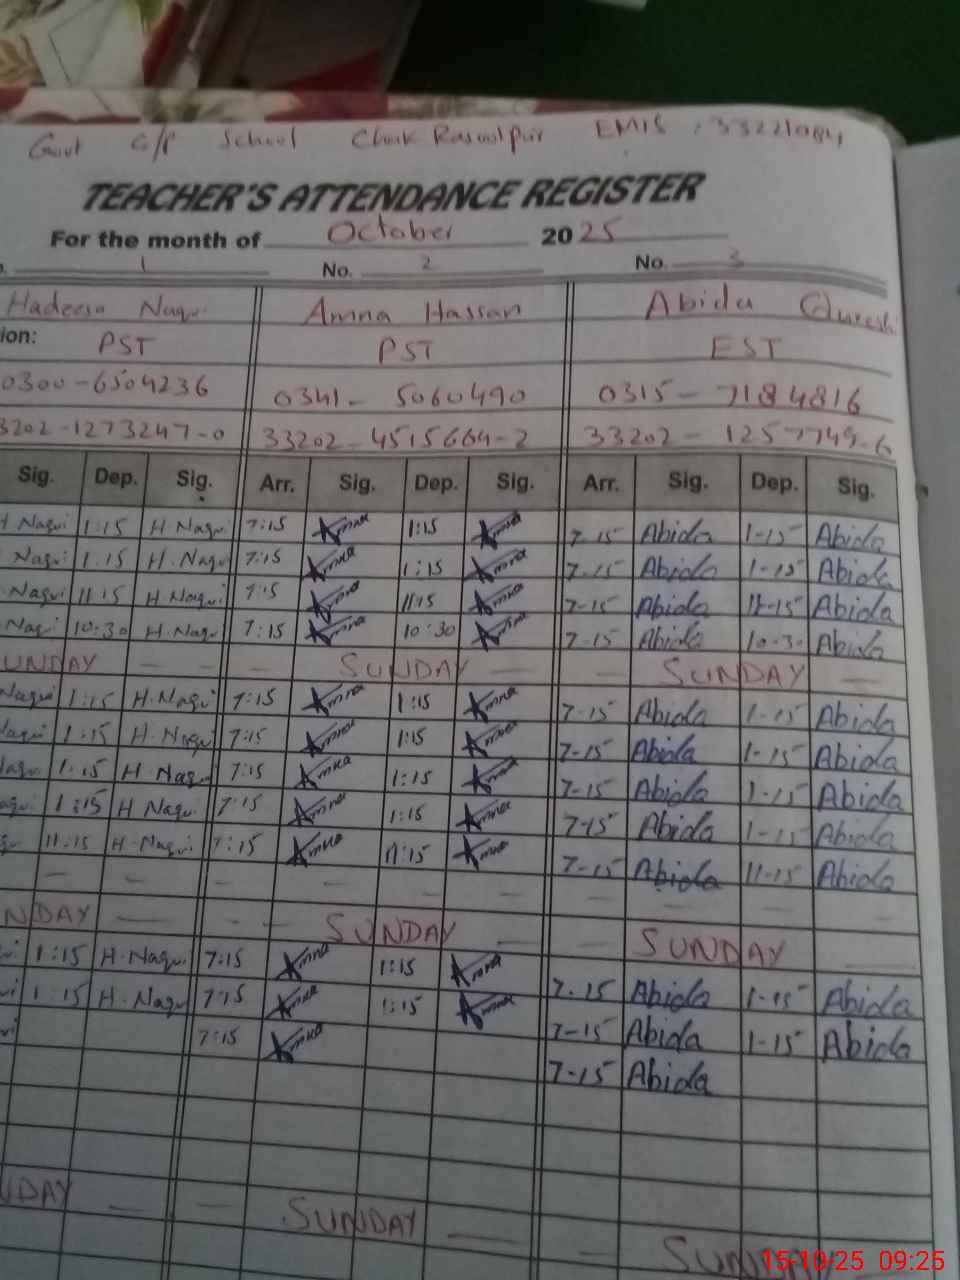 Govt G/P School Chak Rasoolpur EMIS : 33221084
TEACHER'S ATTENDANCE REGISTER
For the month of October 2025
1 No. 2 No. 3
Hadeesa Naqvi Amna Hassan Abida Qureshi
ion: PST PST EST
0300-6504236 0341-5060490 0315-7184816
3202-1273247-0 33202-4515664-2 33202-1257749-6
Sig. Dep. Sig. Arr. Sig. Dep. Sig. Arr. Sig. Dep. Sig.
H.Naqvi 1:15 H.Naqvi 7:15 Amna 1:15 Amna 7-15 Abida 1-15 Abida
Naqvi 1:15 H.Naqvi 7:15 Amna 1:15 Amna 7-15 Abida 1-15 Abida
Naqvi 11:15 H.Naqvi 7:15 Amna 11:15 Amna 7-15 Abida 11-15 Abida
Naqvi 10:30 H.Naqvi 7:15 Amna 10:30 Amna 7-15 Abida 10-30 Abida
UNDAY — — — SUNDAY — SUNDAY —
Naqvi 1:15 H.Naqvi 7:15 Amna 1:15 Amna 7-15 Abida 1-15 Abida
aqvi 1:15 H.Naqvi 7:15 Amna 1:15 Amna 7-15 Abida 1-15 Abida
aqvi 1:15 H.Naqvi 7:15 Amna 1:15 Amna 7-15 Abida 1-15 Abida
aqvi 1:15 H Naqvi 7:15 Amna 1:15 Amna 7-15 Abida 1-15 Abida
qvi 11:15 H.Naqvi 7:15 Amna 11:15 Amna 7-15 Abida 11-15 Abida
— — — — — — — — — — —
NDAY — — — SUNDAY — — SUNDAY —
vi 1:15 H.Naqvi 7:15 Amna 1:15 Amna 7-15 Abida 1-15 Abida
vi 1:15 H.Naqvi 7:15 Amna 1:15 Amna 7-15 Abida 1-15 Abida
vi 7:15 Amna 7-15 Abida
NDAY — — SUNDAY — — SUNDAY
15-10-25 09:25